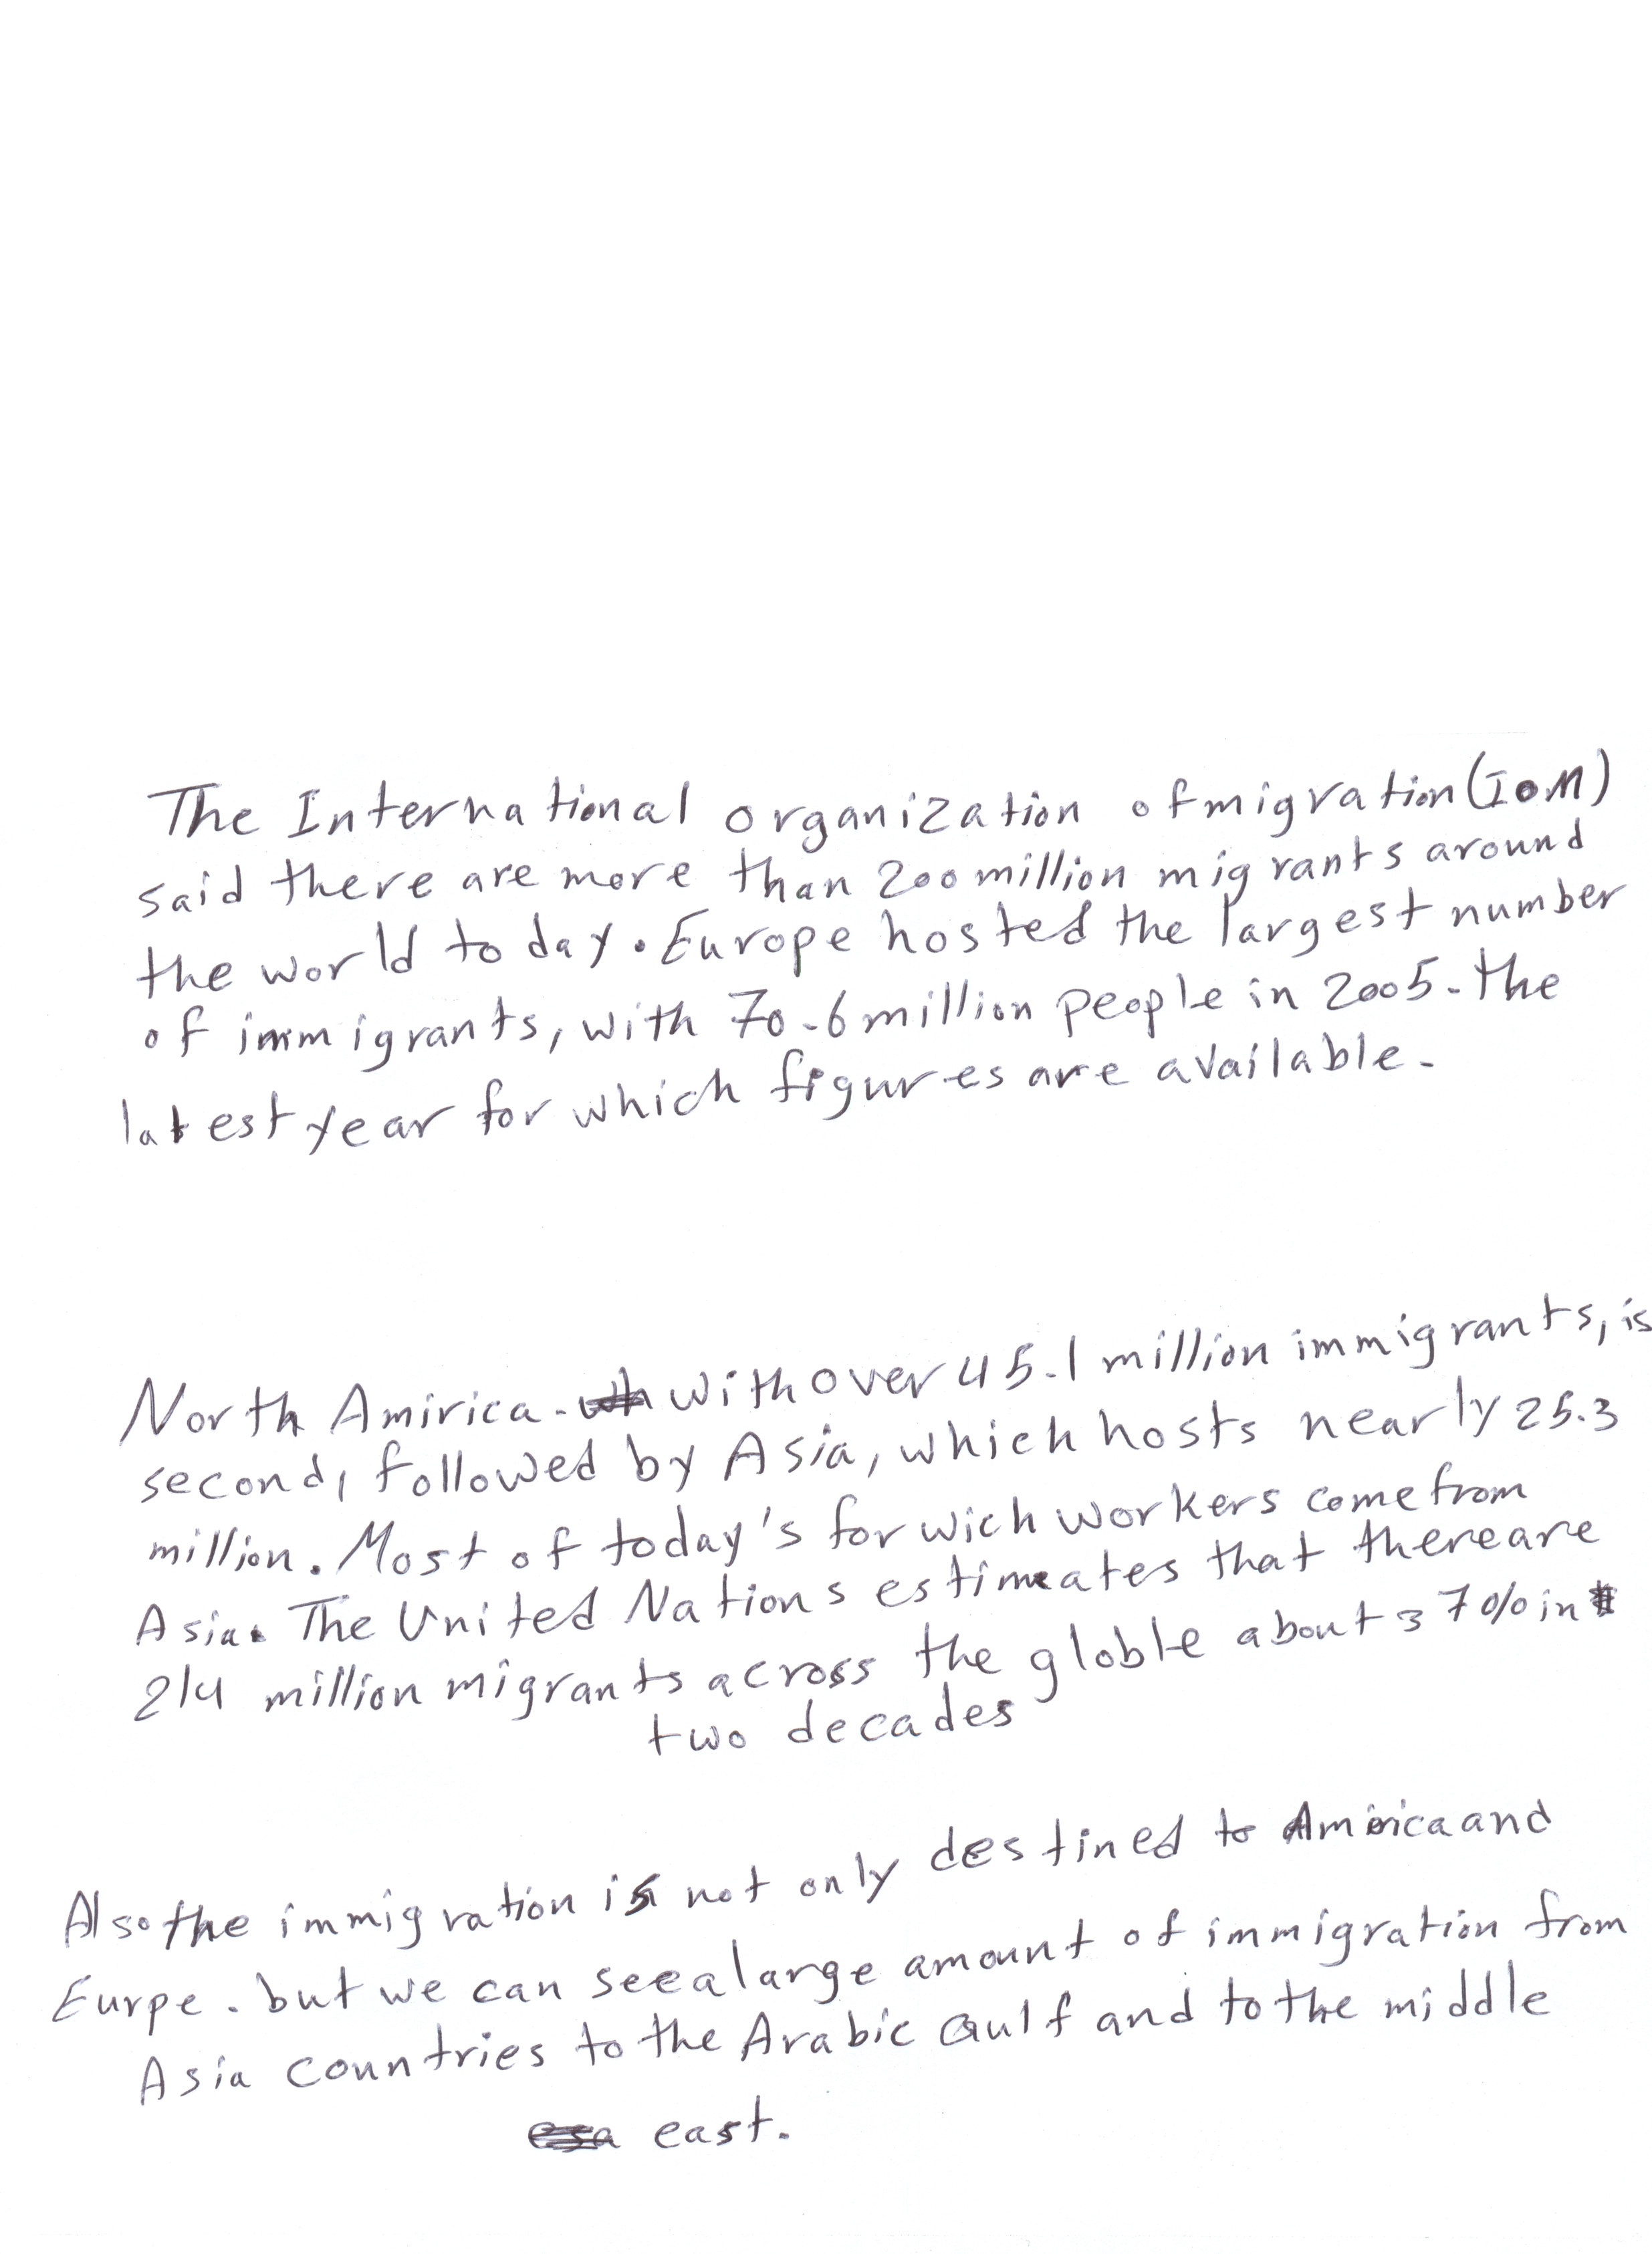 The International organization of migration (IOM)
said there are more than 200 million migrants around
the world today. Europe hosted the largest number
of immigrants, with 70.6 million people in 2005. the
latest year for which figures are available.
North Amirica. with over 45.1 million immigrants, is
second, followed by Asia, which hosts nearly 25.3
million. Most of today's for wich workers come from
Asia. The United Nations estimates that there are
214 million migrants across the globle about 37% in
two decades
Also the immigration is not only destined to Amirica and
Eurpe. but we can see a large amount of immigration from
Asia countries to the Arabic Gulf and to the middle
east.